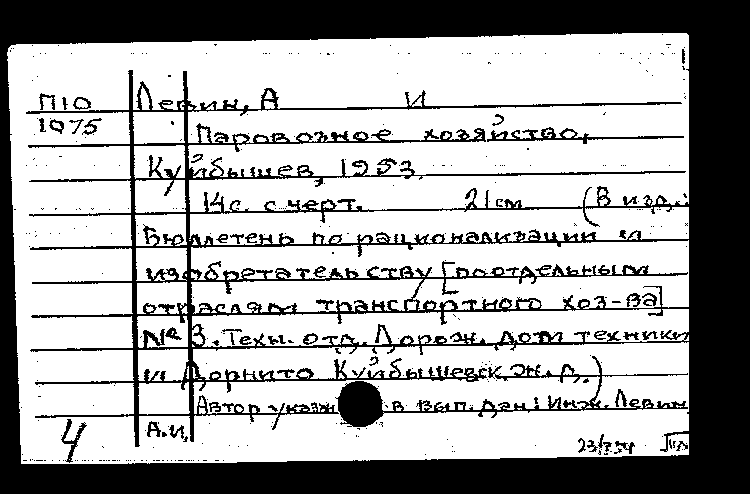 П10 Левин, А И
1075 Паровозное хозяйство,
Куйбышев, 1953.
14с. с черт. 21см (В изд.:
Бюллетень по рационализации и
изобретательству [по отдельным
отраслям транспортного хоз-ва]
№ 3. Техн. отд. Дорож. дом техники
и Дорнито Куйбышевск. ж. д.)
Автор указан в вып. дан: Инж. Левин
4 А.И.